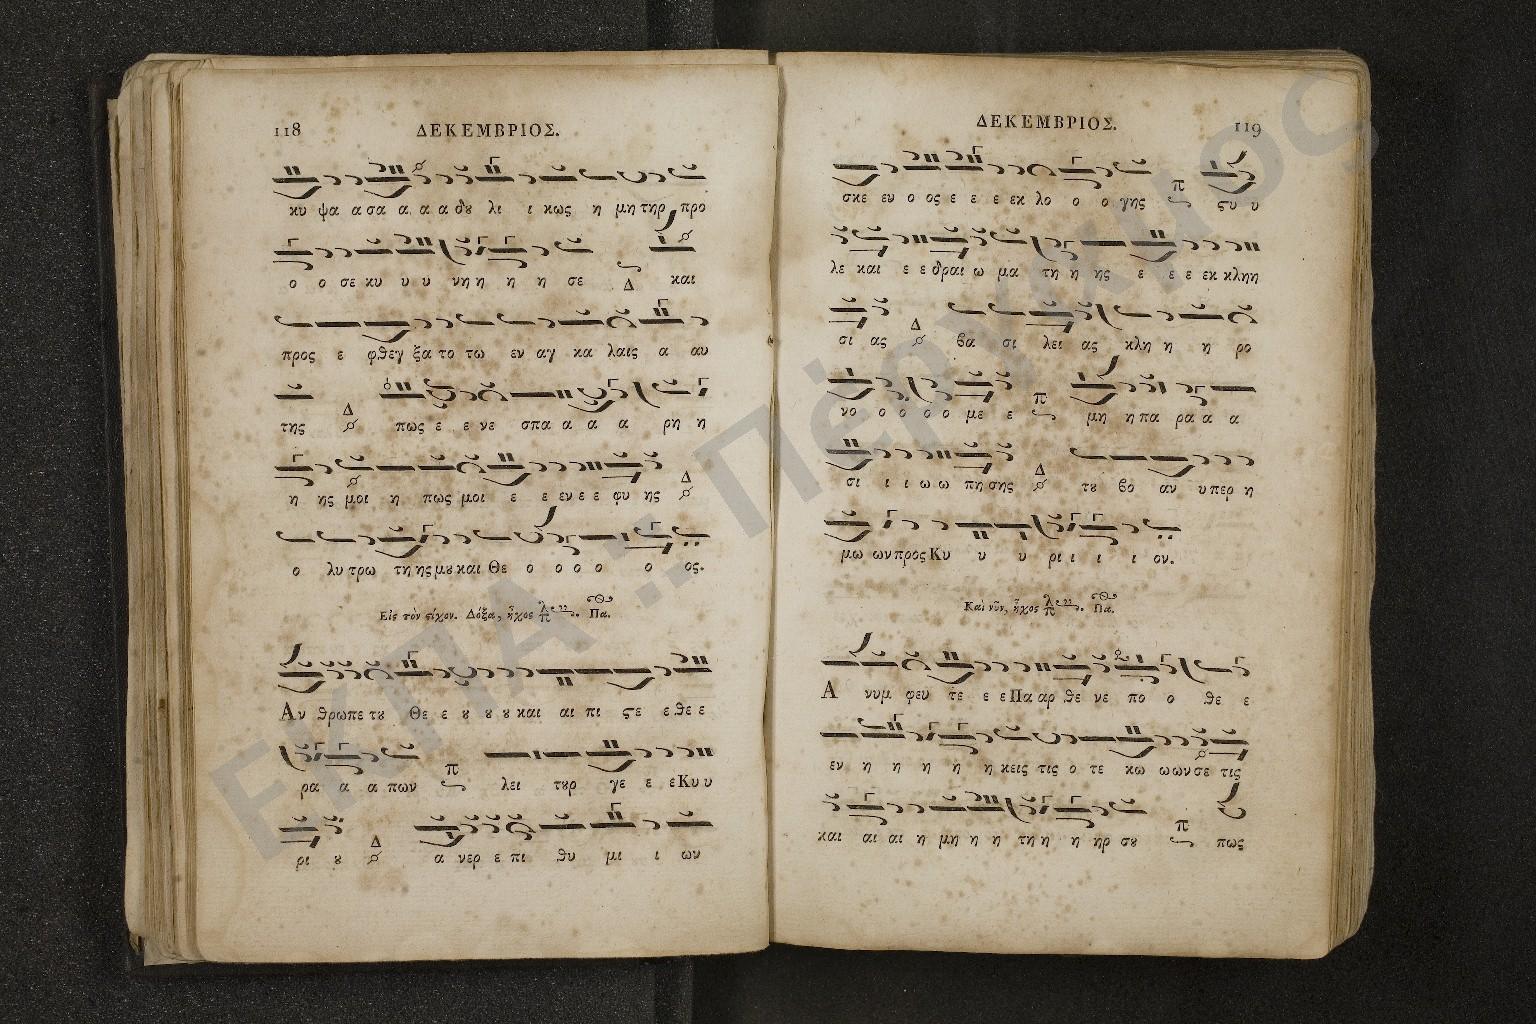 118
ΔΕΚΕΜΒΡΙΟΣ.
κυ ψα α σα α α α δȣ λι ι κως η μη τηρ προ
ο ο σε κυ υ υ νη η η η σε Δ και
προς ε φθεγ ξα το τω εν αγ κα λαις α αυ
της Δ πως ε ε νε σπα α α α ρη η
η ης μοι η πως μοι ε ε εν ε ε φυ ης Δ
ο λυ τρω τη ης μȣ και Θε ο ο ο ο ο ος.
Εἰς τὸν ϛίχον. Δόξα, ἦχος λ π Πα.
Αν θρωπε τȣ Θε ε ȣ ȣ ȣ και αι πι ϛε ε θε ε
ρα α α πων π λει τȣρ γε ε ε Κυ υ
ρι ȣ Δ α νερ ε πι θυ μι ι ων
ΔΕΚΕΜΒΡΙΟΣ.
119
σκε ευ ο ος ε ε ε εκ λο ο ο γης π ϛυ υ
λε και ε ε δραι ω μα τη η ης ε ε ε εκ κλη η
σι ας Δ βα σι λει ας κλη η η ρο
νο ο ο ο ο με ε π μη η πα ρα α α
σι ι ι ω ω πη σης Δ τȣ βο αν υ περ η
μω ων προς Κυ υ υ ρι ι ι ι ον.
Καὶ νῦν, ἦχος λ π Πα.
Α νυμ φευ τε ε ε Πα αρ θε νε πο ο θε ε
εν η η η η η κεις τις ο τε κω ω ων σε τις
και αι αι η μη η η τη η η ηρ σȣ π πως
ΕΚΠΑ :: Πέργαμος